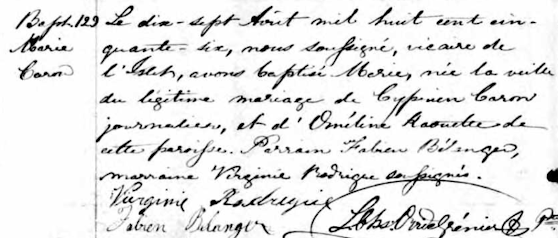 Bapt. 129
Marie
Caron
Le dix-sept Août mil huit cent cin-
quante-six, nous soussigné, vicaire de
l'Islet, avons baptisé Marie, née la veille
du légitime mariage de Cyprien Caron
journalier, et d'Oméline de
cette paroisse. Parrain Fabien Bélanger,
marraine Virginie Rodrigue soussignés.
Virginie Rodrigue
Fabien Bélanger